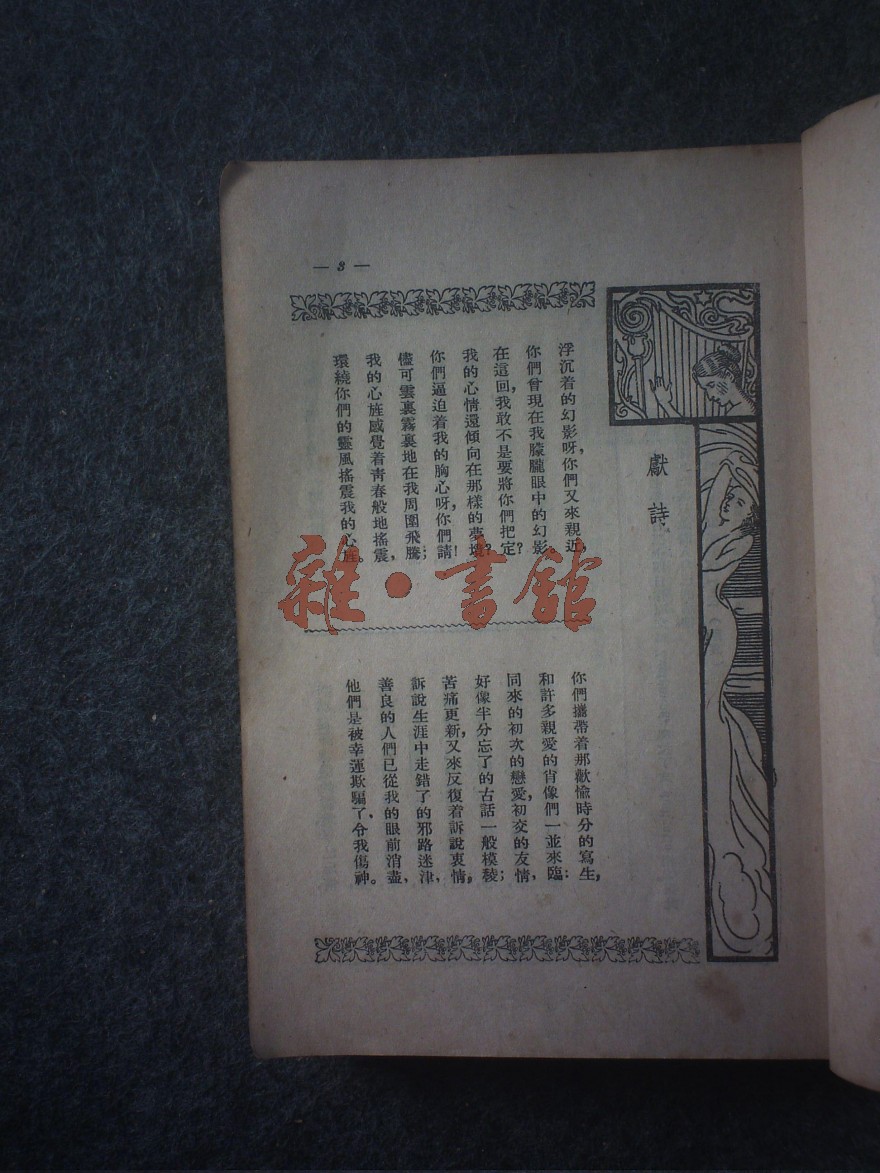 — 3 —
獻詩
浮沉着的幻影呀，你們又來親近，
你們曾現在我朦朧眼中的幻影
在這回，我敢不是要將你們把定？
我的心情還傾向在那樣的夢境？
你們逼迫着我的胸心呀，你們請！
儘可雲裏霧裏地在我周圍飛騰；
我的心旌感覺着青春般地搖震，
環繞你們的靈風搖震我的心旌。
你們攜帶着那歡愉時分的寫生，
和許多親愛的肖像們一並來臨：
同來的初次的戀愛，初交的友情，
好像半分忘了的古話一般模稜；
苦痛更新，又來反復着訴說衷情，
訴說生涯中走錯了的邪路迷津，
善良的人們已從我的眼前消盡，
他們是被幸運欺騙了，令我傷神。
雜·書館